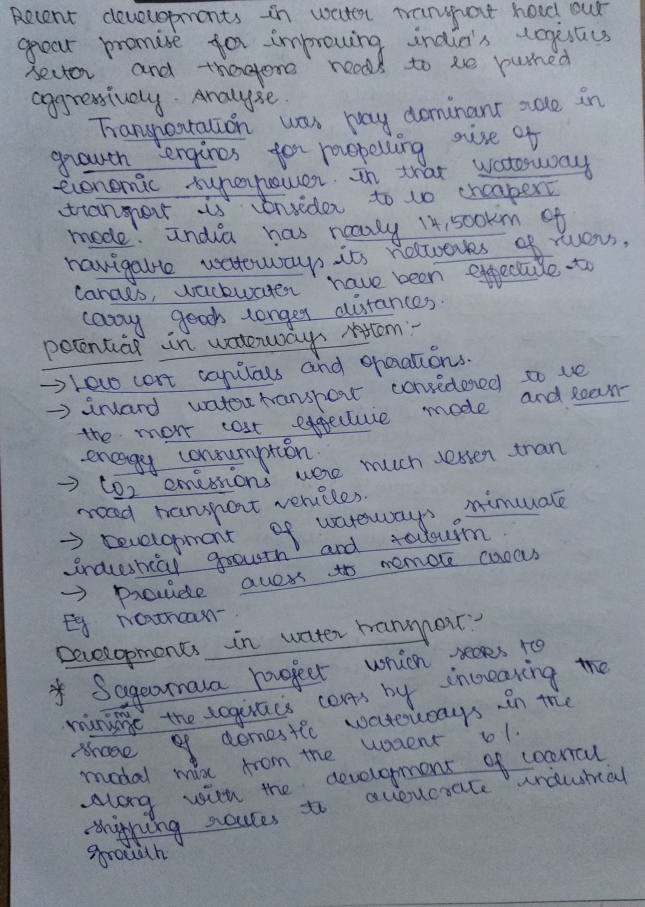 Recent developments in water transport hold out
great promise for improving india's logistics
sector and therefore needs to be pushed
aggressively. Analyse.
Transportation was play dominant role in
growth engines for propelling rise of
economic superpower. In that waterway
transport is consider to be cheapest
mode. India has nearly 14,500km of
navigable waterways its networks of rivers,
canals, backwater have been effective to
carry goods longer distances.
potential in waterways system:-
→ Low cost capitals and operations.
→ inland water transport considered to be
the most cost effective mode and least
energy consumption.
→ CO2 emissions were much lesser than
road transport vehicles.
→ Development of waterways stimulate
industrial growth and tourism.
→ Provide access to remote areas
Eg Northeast.
Developments in water transport:-
* Sagarmala project which seeks to
the logistics costs by increasing the
share of domestic waterways in the
modal mix from the current 6%.
Along with the development of coastal
shipping routes to accelerate industrial
growth